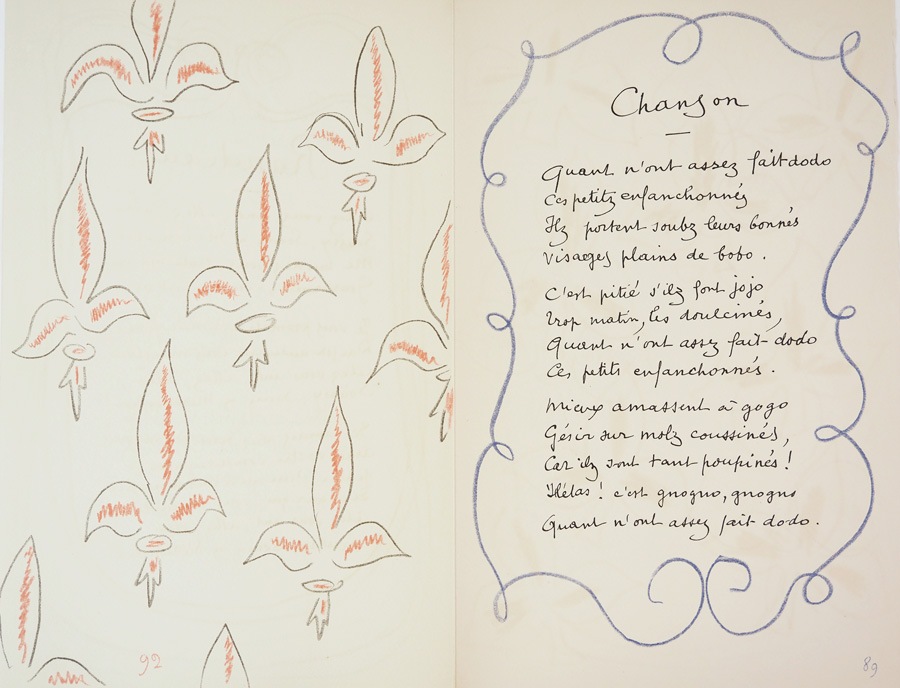 92
Chanson
Quant n'ont assez fait dodo
Ces petitz enfanchonnés
Ilz portent soubz leurs bonnés
Visages plains de bobo.
C'est pitié s'ilz font jojo
Trop matin, les doulcinés,
Quant n'ont assez fait-dodo
Ces petits enfanchonnés.
Mieux amassent à gogo
Gésir sur molz coussinés,
Car ilz sont tant poupinés!
Hélas! c'est gnogno, gnogno
Quant n'ont assez fait dodo.
89